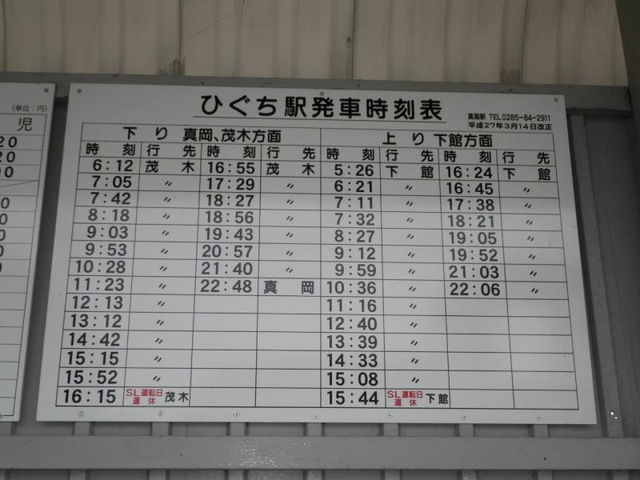 (単位:円)
児
20
20
00
ひぐち駅発車時刻表
真岡駅 TEL0285-84-2911
平成27年3月14日改正
下り 真岡、茂木方面 上り 下館方面
時刻 行先 時刻 行先 時刻 行先 時刻 行先
6:12 茂木 16:55 茂木 5:26 下館 16:24 下館
7:05 〃 17:29 〃 6:21 〃 16:45 〃
7:42 〃 18:27 〃 7:11 〃 17:38 〃
8:18 〃 18:56 〃 7:32 〃 18:21 〃
9:03 〃 19:43 〃 8:27 〃 19:05 〃
9:53 〃 20:57 〃 9:12 〃 19:52 〃
10:28 〃 21:40 〃 9:59 〃 21:03 〃
11:23 〃 22:48 真岡 10:36 〃 22:06 〃
12:13 〃 11:16 〃
13:12 〃 12:40 〃
14:42 〃 13:39 〃
15:15 〃 14:33 〃
15:52 〃 15:08 〃
16:15 SL運転日運休 茂木 15:44 SL運転日運休 下館